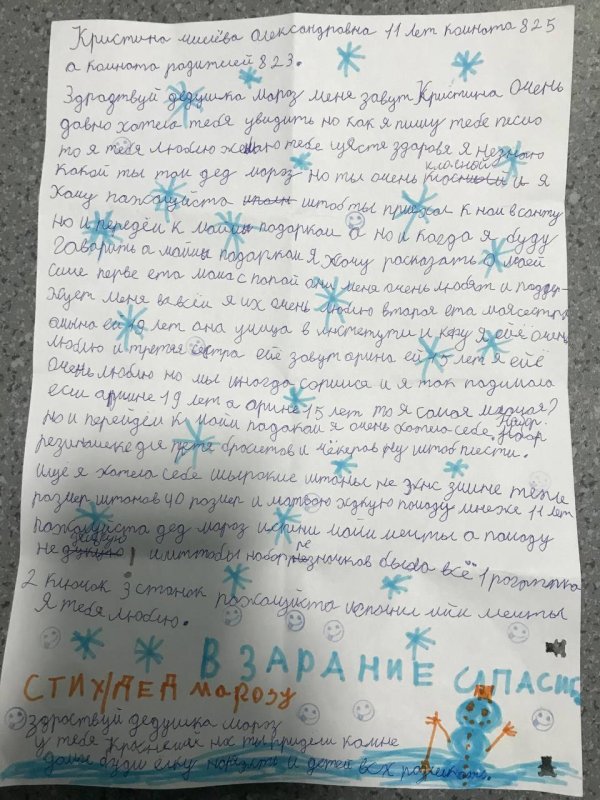 Кристина Александровна 11 лет комната 825
а комната родителей 823.
Здрадтвуй дедушка мороз меня завут Кристина очень
давно хотела тебя увидить но как я пишу тебе писмо
то я тебя люблю желаю тебе щястя здоровя я незнаю
какой ты там дед мороз но ты очень класный и я
хочу пажалуйста штоб ты приехал к нам в санту
но и передём к майим подаркам а но и когда я буду
гаварить а майиш подаркам я хочу расказать о маей
симе перве ета мама с папой они меня очень любят и поддер-
жует меня вавсём я их очень люблю вторая ета мая сестра
ей 19 лет она учица в институти и я её очень
люблю и третяя сестра её завут арина ей 15 лет я ёё
очень люблю но мы иногда соримся и я так падумала
если арише 19 лет а арине 15 лет то я самая
но и перейдём к майи падакам я очень хотела себе набор
резиначек для брослетов и чёкеров ну штоб плести.
ище я хотела себе шырокие штаны не зимние теплые
розмер штанов 40 розмер и матвою жыдкую помаду мнеже 11 лет
пажалуйста дед мороз исполни майи мечты а помаду
не жыдкую ! и чтобы набор резиначков было всё 1 рогатка
2 крючок 3 станок пажалуйста исполни мйи мечты
Я тебя люблю.
ВЗАРАНИЕ СПАСИБ
СТИХ/ДЕД МАРОЗУ
здраствуй дедушка мароз
у тебя красненкий нос ты придёш камне
дамой будиш ёлку наряжать и детей всех развлекать.